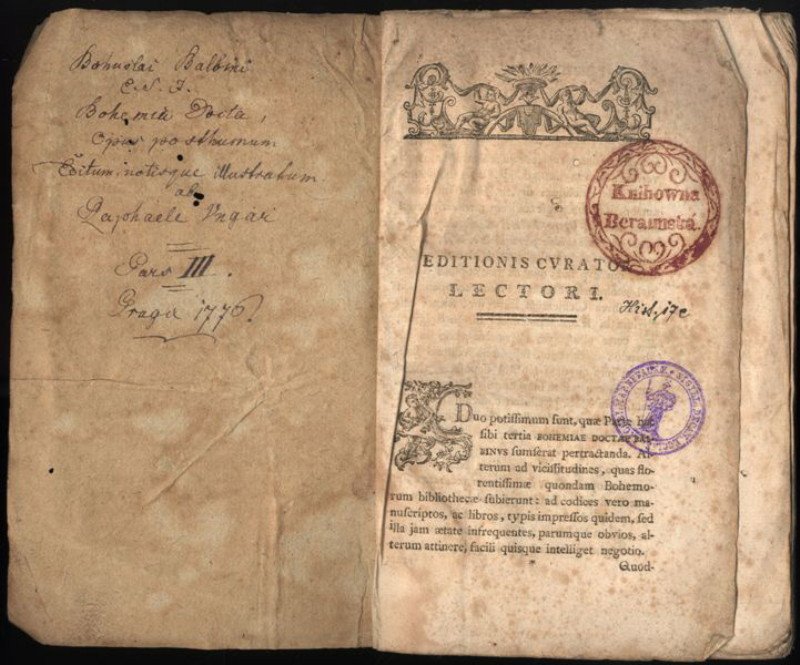 Bohuslai Balbini
C. S. J.
Bohemia Docta,
Opus posthumum
Editum, notisque illustratum
ab
Raphaele Ungar
Pars III.
Praga 1776.
Knihowna
Beraunská.
EDITIONIS CVRATO
LECTORI.
Duo potiſſimum ſunt, quæ Parte hac
ſibi tertia BOHEMIAE DOCTAE BAL-
BINVS ſumſerat pertractanda. Al-
terum ad viciſſitudines, quas flo-
rentiſſimæ quondam Bohemo-
rum bibliothecæ ſubierunt: ad codices vero ma-
nuſcriptos, ac libros, typis impreſſos quidem, ſed
illa jam ætate infrequentes, parumque obvios, al-
terum attinere, facili quisque intelliget negotio.
Quod-